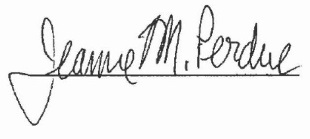 Jeanne M. Perdue